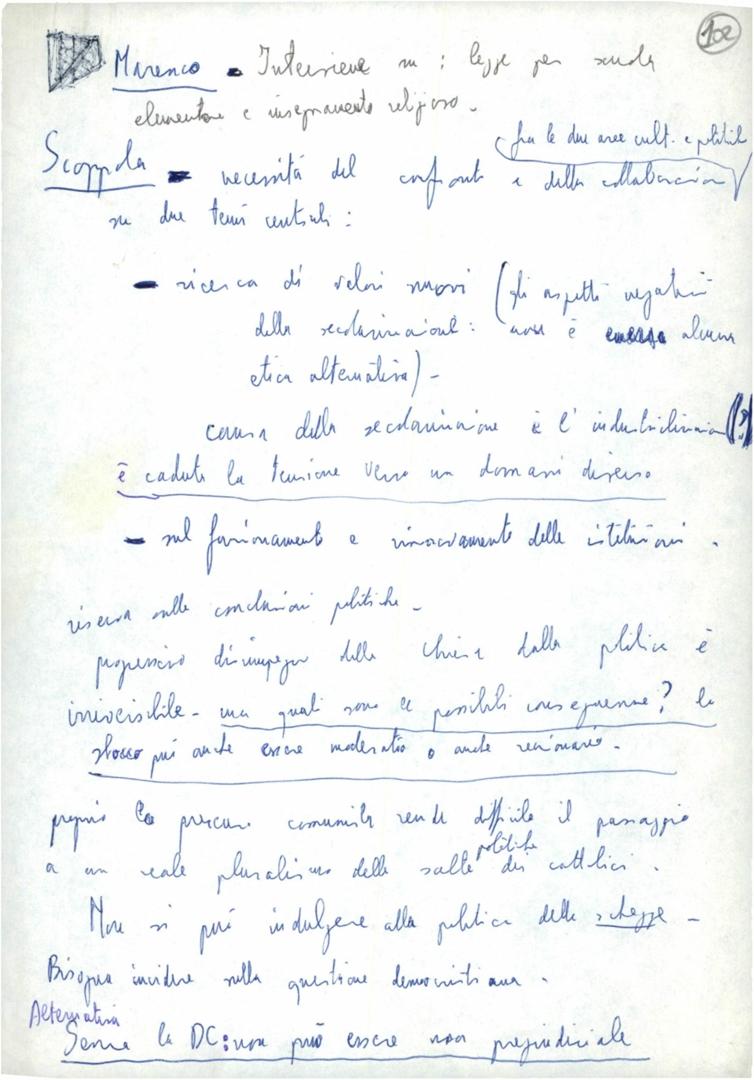 102
Marenco - Interviene su: legge per scuola
elementare e insegnamento religioso.
(fra le due aree cult. e politiche
Scoppola - necessità del confronto e della collaborazione
su due temi centrali:
- ricerca di valori nuovi (gli aspetti negativi
della secolarizzazione: non è emersa alcuna
etica alternativa) -
causa della secolarizzazione è l'industrializzazione (?)
è caduta la tensione verso un domani diverso
- sul funzionamento e rinnovamento delle istituzioni.
riserva sulle conclusioni politiche -
progressivo disimpegno della Chiesa dalla politica è
irrinecibile - ma quali sono le possibili conseguenze? lo
sbocco può anche essere moderato o anche reazionario.
proprio la comunista rende difficile il passaggio
a un reale pluralismo delle scelte politiche dei cattolici.
Non si può indulgere alla politica delle schegge -
Bisogna incidere sulla questione democristiana.
Alternativa
Senza la DC: non può essere una pregiudiziale